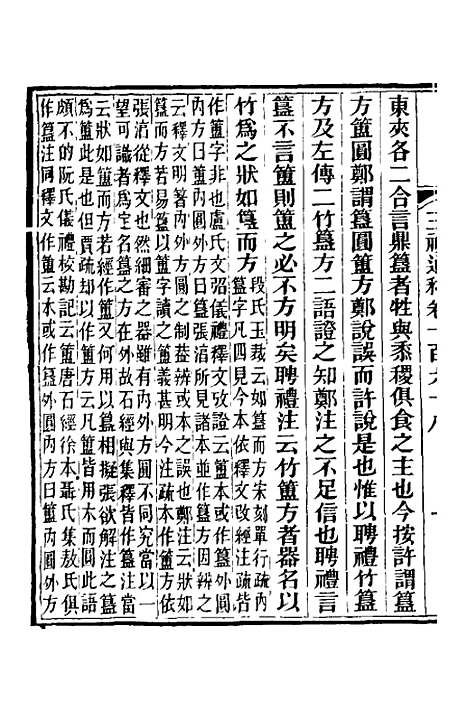 三禮通釋卷一百六十八
一
東夾各二合言鼎簋者牲與黍稷俱食之主也今按許謂簋
方簠圓鄭謂簋圓簠方鄭說誤而許說是也惟以聘禮竹簋
方及左傳二竹簋方二語證之知鄭注之不足信也聘禮言
簋不言簠則簠之必不方明矣聘禮注云竹簠方者器名以
竹爲之狀如簋而方
段氏玉裁云如簋而方宋刻單行疏內
簋字凡四見今本依釋文改經注疏皆
作簠字非也盧氏文弨儀禮釋文攷證云簠本或作簋外圓
內方曰簠內圓外方曰簋張淳所見諸本並作簋方因辨之
云釋文明著內方外圓之制蓋辨或本之誤也鄭注云狀如
簋而方若易簋以簠字讀之簠義甚明今注疏本作簠方依
張淳從釋文也然細審之器雖有內外方圓不同究當以一
望可識者爲定名簋之方在外故石經與集釋皆作簋注當
云狀如簠而方若作簠又何用以簋相擬張欲解注之簋
爲簠此是也但賈疏却以簠注云凡簠皆用木而圓此語
頗不的阮氏儀禮校勘記云簠唐石經徐本聶氏集敖氏俱
作簋注同釋文作簠云木或作簋外圓內方曰簠內圓外方